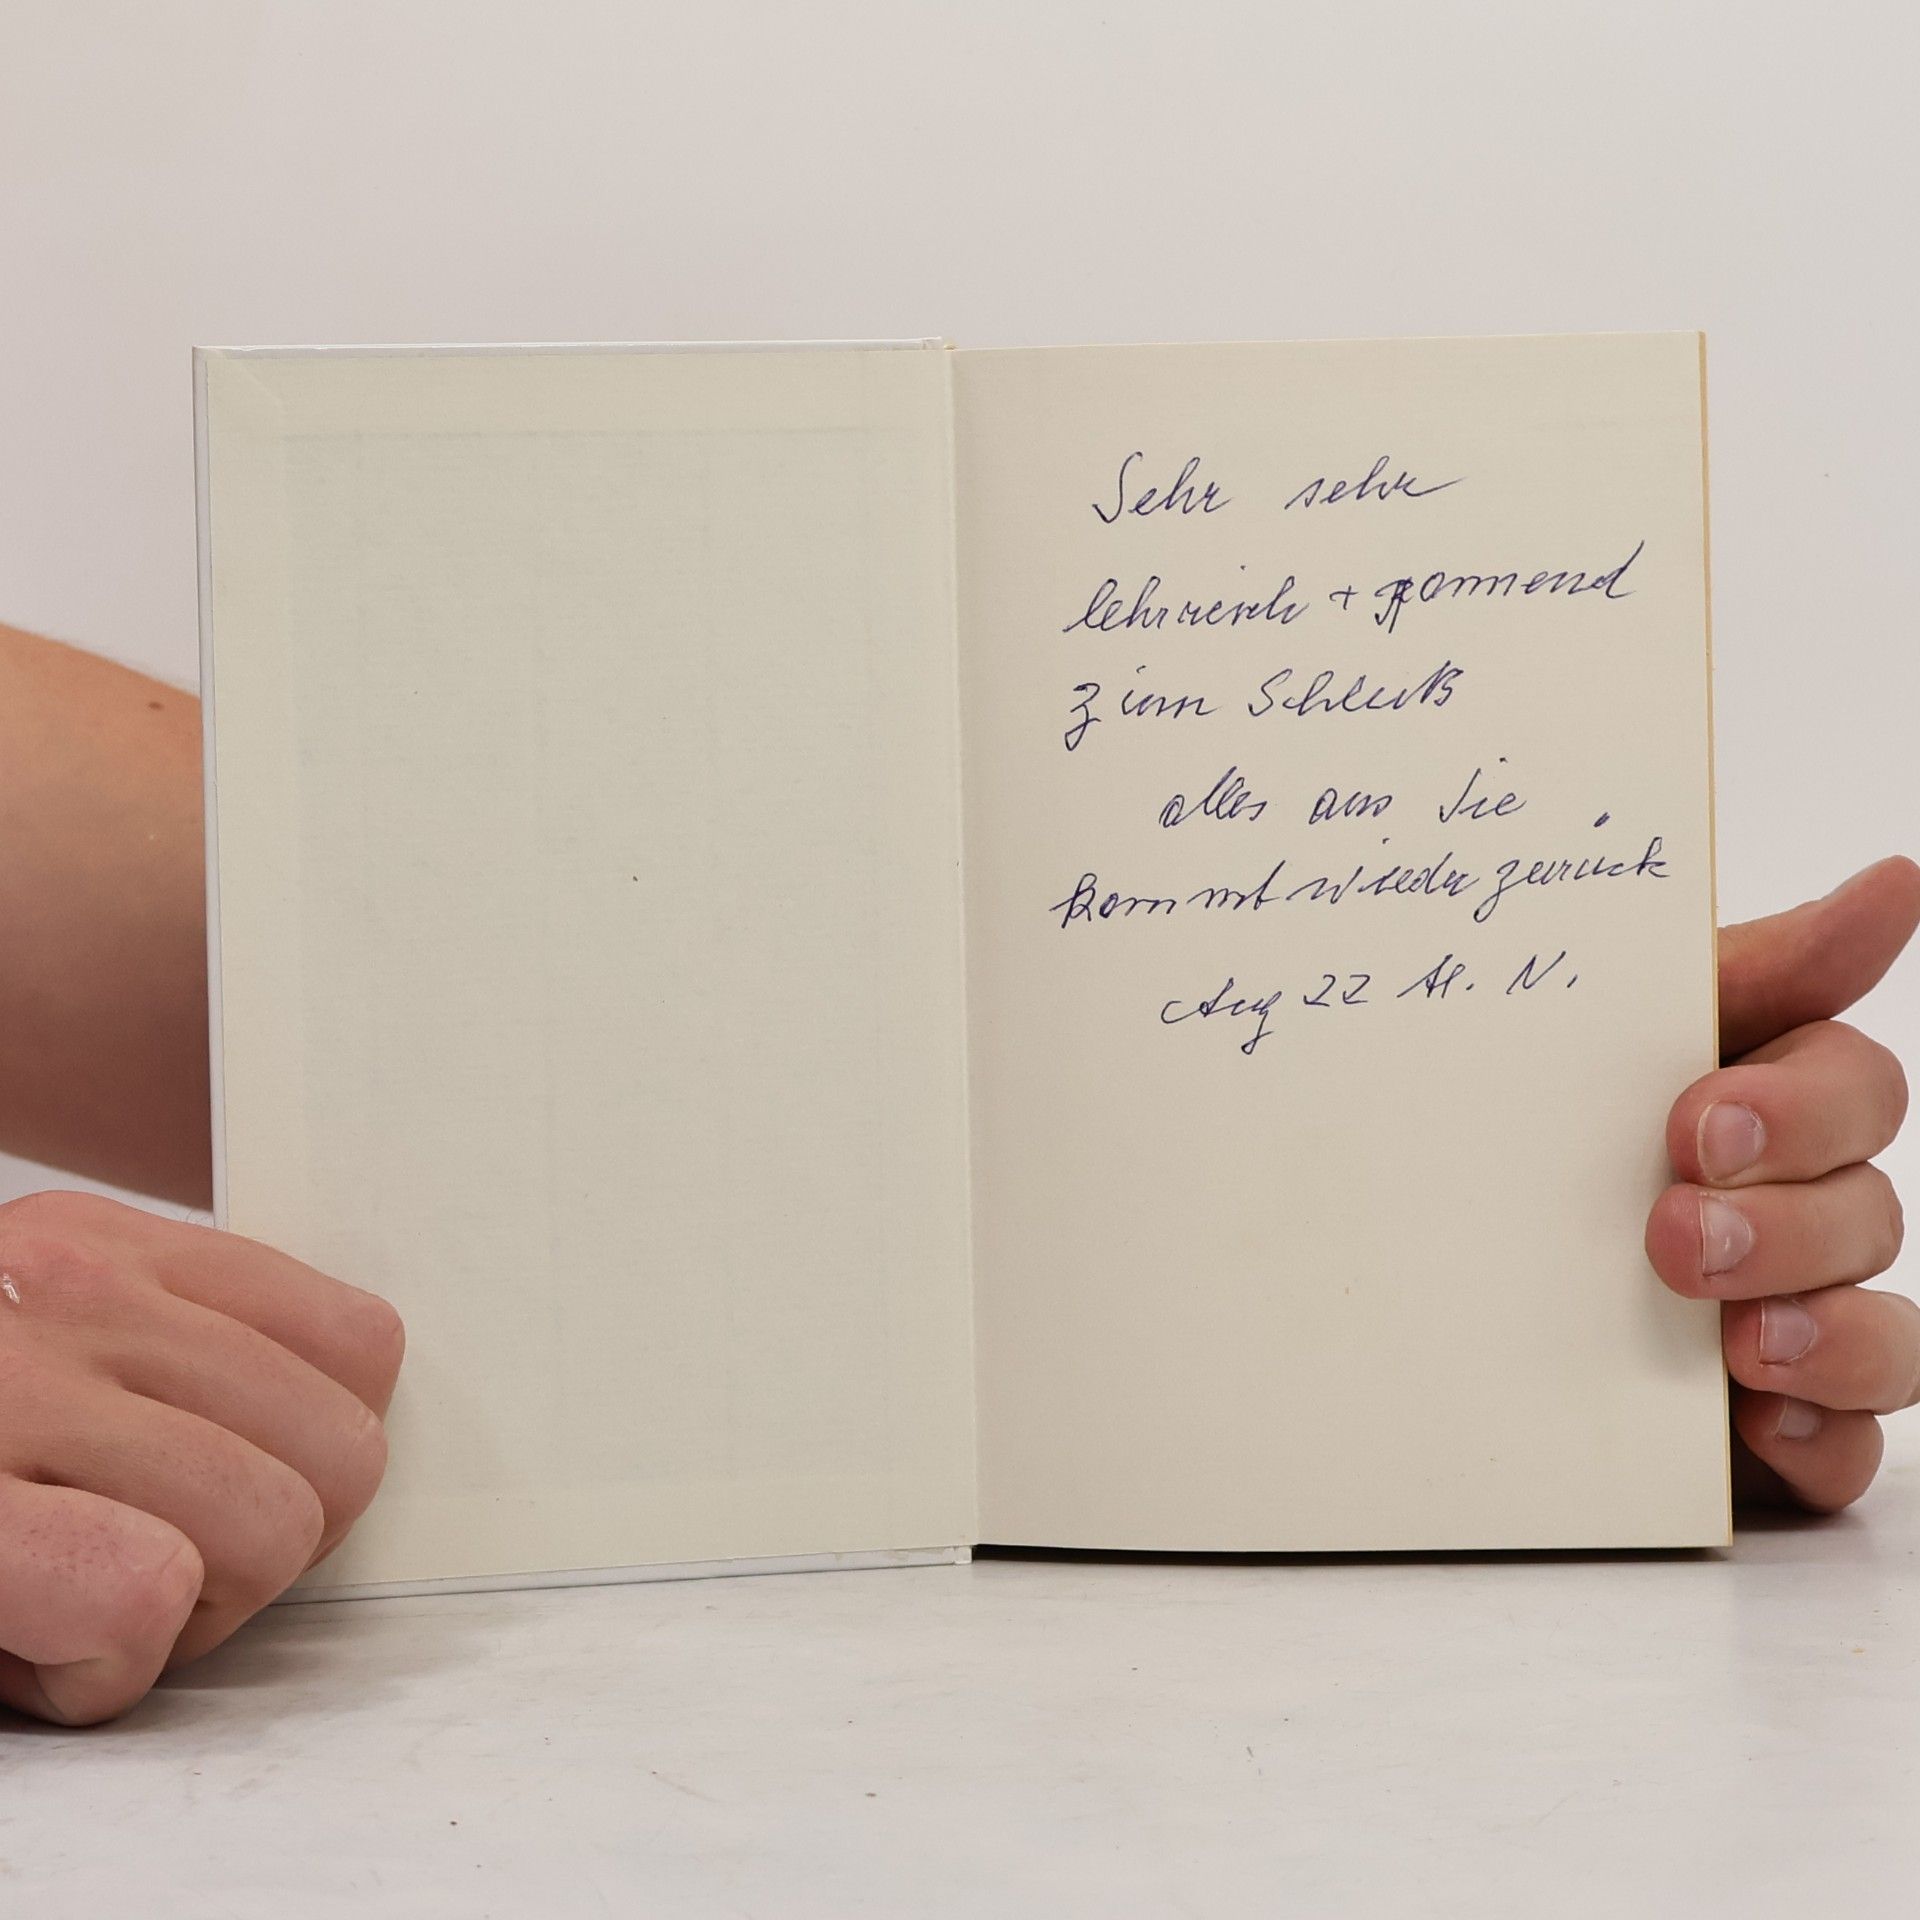 Sehr sehr
lehrreich + spannend
zum Schluß
alles aus Sie
kommt wieder zurück
Aug 22 N.